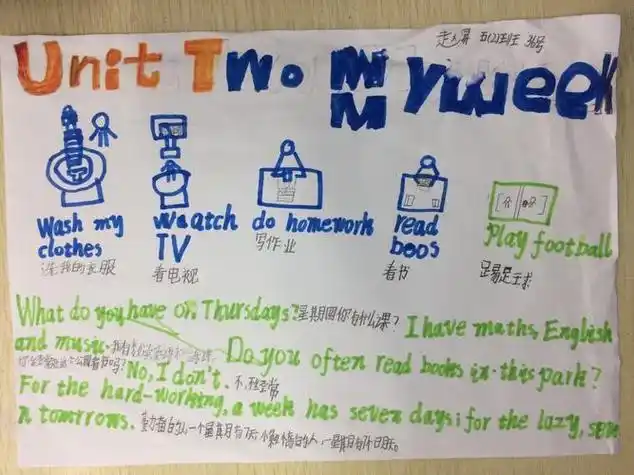 五(2)班 36号
Unit Two My week
Wash my clothes
洗我的衣服
waatch TV
看电视
do homework
写作业
read boos
看书
Play football
踢足球
What do you have on Thursdays? 星期四你有什么课? I have maths, English
and music. Do you often read books in this park?
No, I don't. 不,不经常
For the hard-working, a week has seven days; for the lazy, seve
n tomrrows.